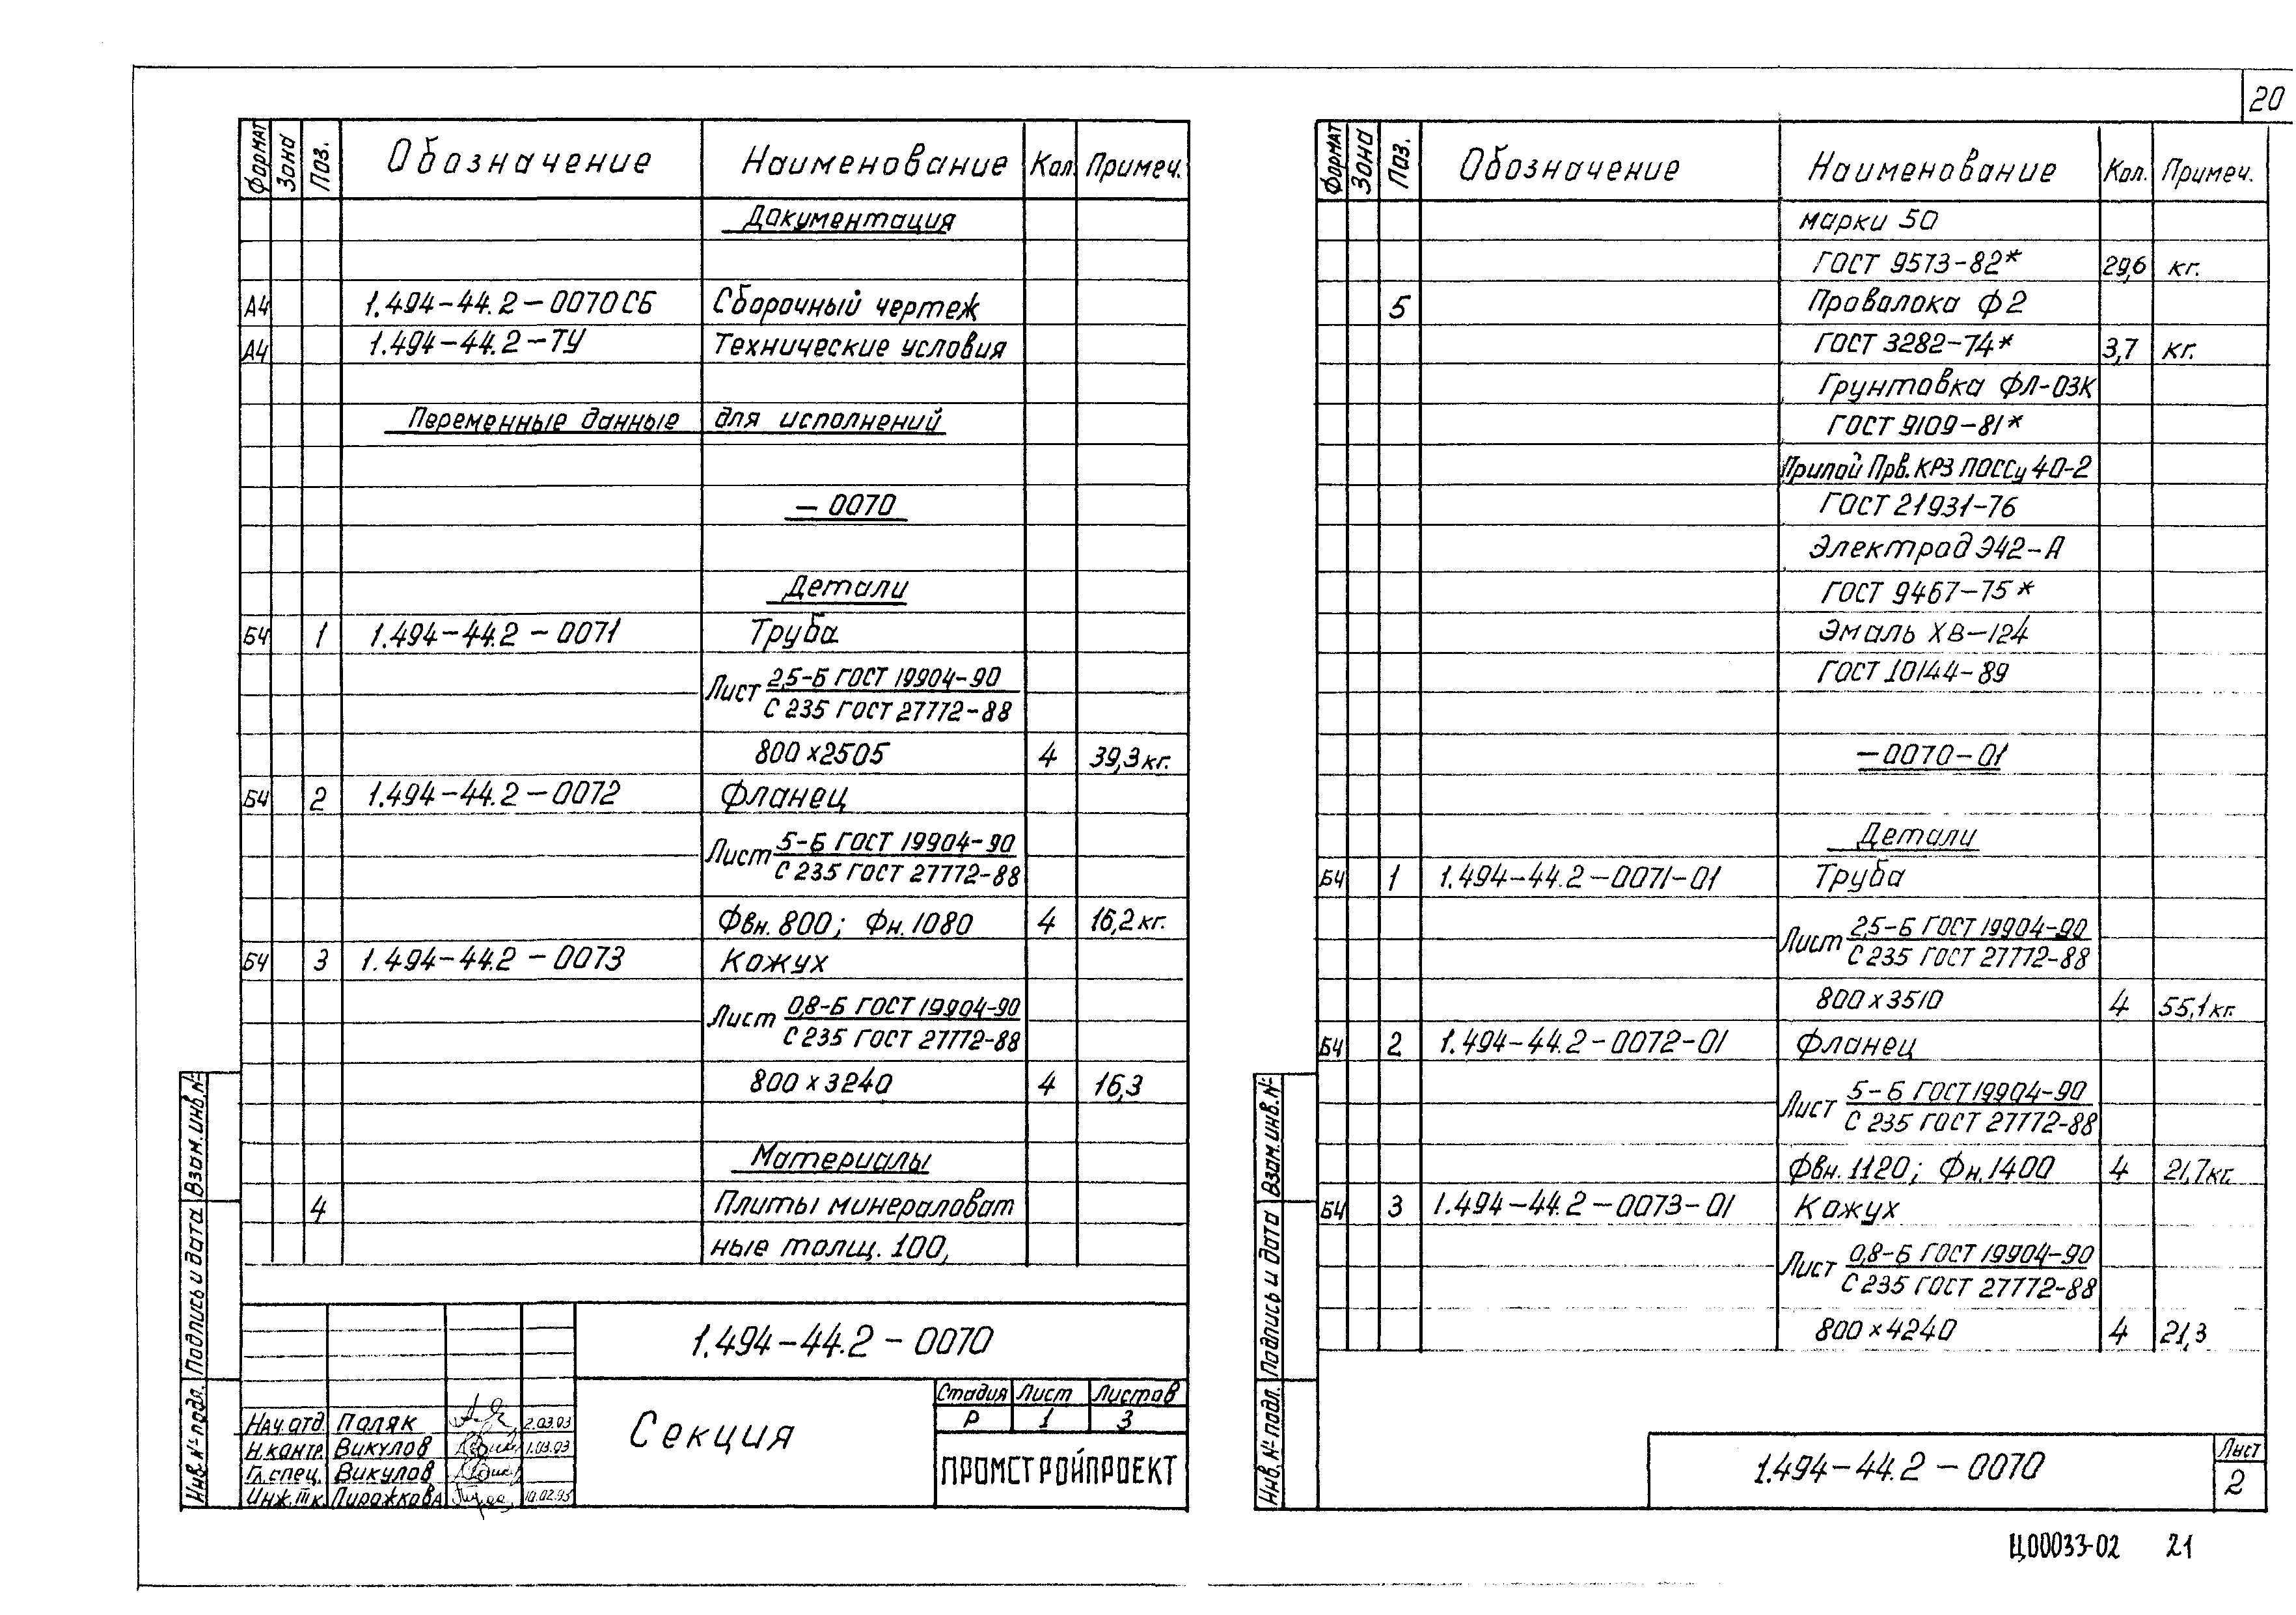 20
Формат Зона Поз. Обозначение Наименование Кол. Примеч.
Документация
А4 1.494-44.2-0070СБ Сборочный чертеж
А4 1.494-44.2-ТУ Технические условия
Переменные данные для исполнений
-0070
Детали
БЧ 1 1.494-44.2-0071 Труба
Лист 2,5-Б ГОСТ 19904-90
С 235 ГОСТ 27772-88
800х2505 4 39,3кг.
БЧ 2 1.494-44.2-0072 Фланец
Лист 5-Б ГОСТ 19904-90
С 235 ГОСТ 27772-88
Фвн. 800; Фн. 1080 4 16,2кг.
БЧ 3 1.494-44.2-0073 Кожух
Лист 0,8-Б ГОСТ 19904-90
С 235 ГОСТ 27772-88
800х3240 4 16,3
Материалы
4 Плиты минераловат
ные толщ. 100,
1.494-44.2-0070
Секция
Стадия Лист Листов
Р 1 3
ПРОМСТРОЙПРОЕКТ
Нач.отд. Поляк 2.03.93
Н.контр. Викулов 1.03.93
Гл.спец. Викулов
Инж.IIIк. Пирожкова
Взам.инв.№
Подпись и дата
Инв.№ подл.
Формат Зона Поз. Обозначение Наименование Кол. Примеч.
марки 50
ГОСТ 9573-82* 29,6 кг.
5 Проволока Ф2
ГОСТ 3282-74* 3,7 кг.
Грунтовка ФЛ-03К
ГОСТ 9109-81*
Припой Прв.КР3 ПОССу 40-2
ГОСТ 21931-76
Электрод Э42-А
ГОСТ 9467-75*
Эмаль ХВ-124
ГОСТ 10144-89
-0070-01
Детали
БЧ 1 1.494-44.2-0071-01 Труба
Лист 2,5-Б ГОСТ 19904-90
С 235 ГОСТ 27772-88
800х3510 4 55,1кг.
БЧ 2 1.494-44.2-0072-01 Фланец
Лист 5-Б ГОСТ 19904-90
С 235 ГОСТ 27772-88
Фвн. 1120; Фн. 1400 4 21,7кг.
БЧ 3 1.494-44.2-0073-01 Кожух
Лист 0,8-Б ГОСТ 19904-90
С 235 ГОСТ 27772-88
800х4240 4 21,3
1.494-44.2-0070
Лист
2
Взам.инв.№
Подпись и дата
Инв.№ подл.
Ц00033-02 21